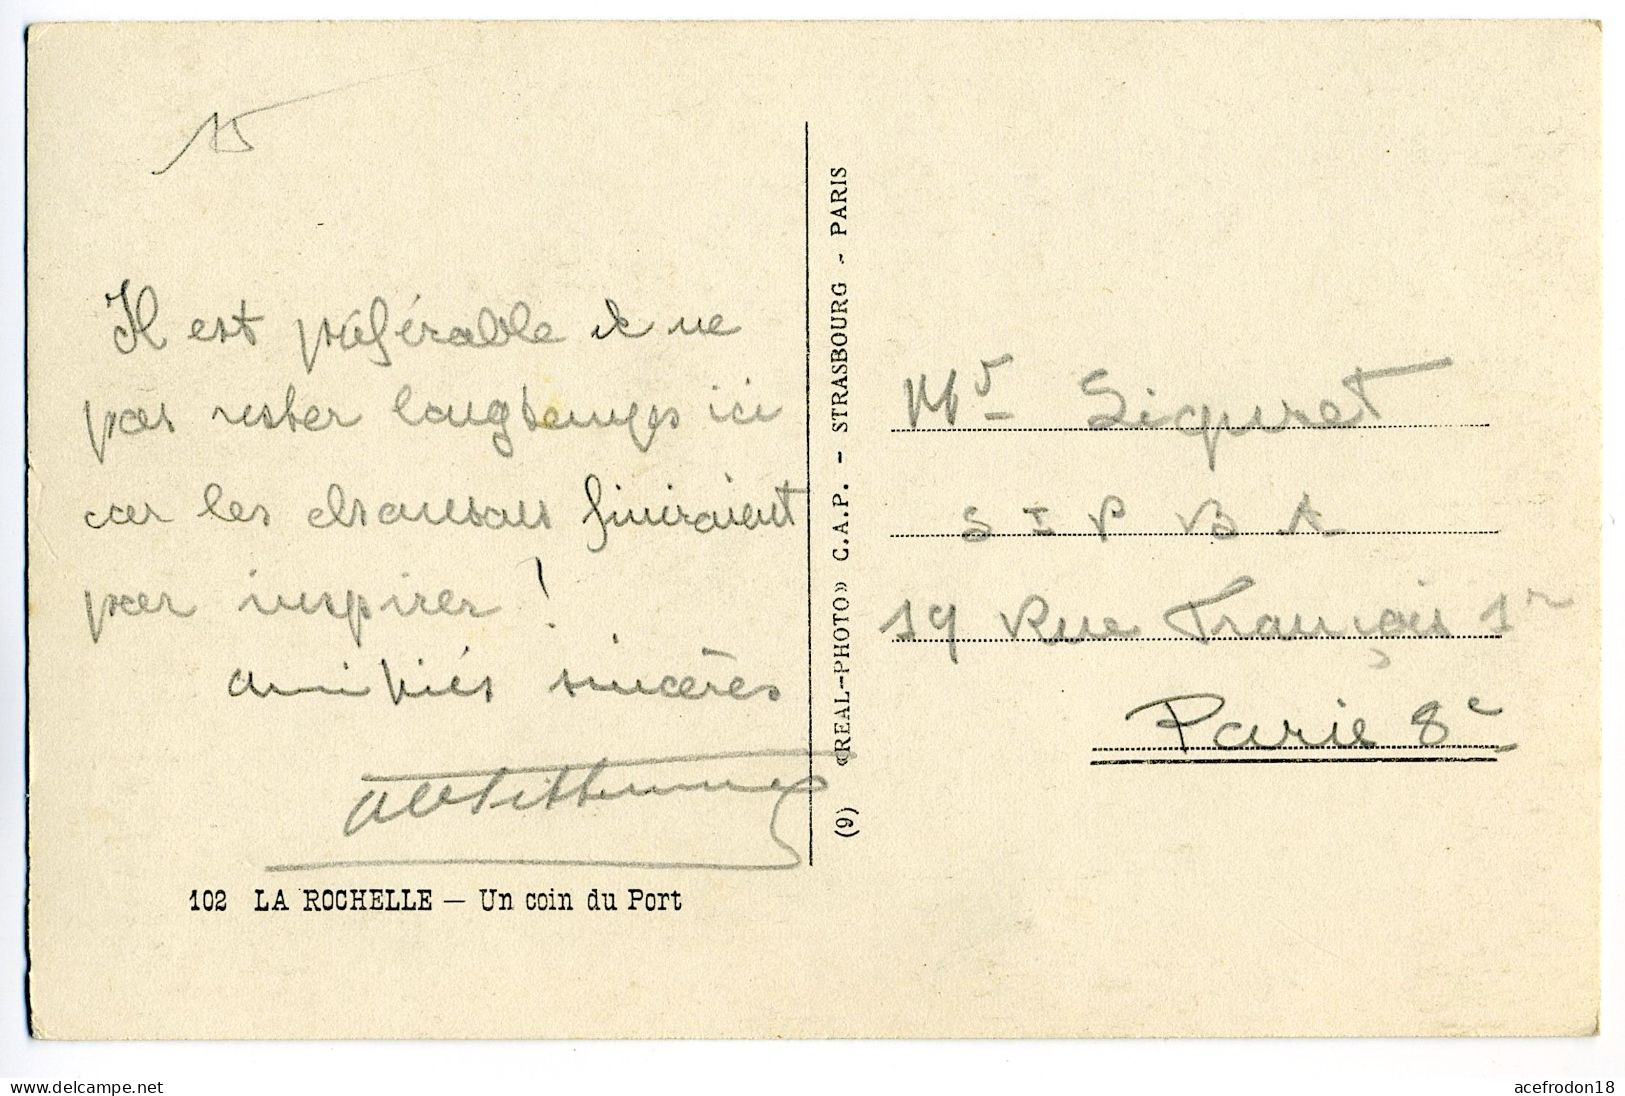 15
Il est préférable de ne
pas rester longtemps ici
car les chansons finiraient
par inspirer !
amitiés sincères
102 LA ROCHELLE — Un coin du Port
(9) «REAL-PHOTO» C.A.P. - STRASBOURG - PARIS
Mr Siguret
S I P B A
19 Rue François 1r
Paris 8e
www.delcampe.net
acefrodon18